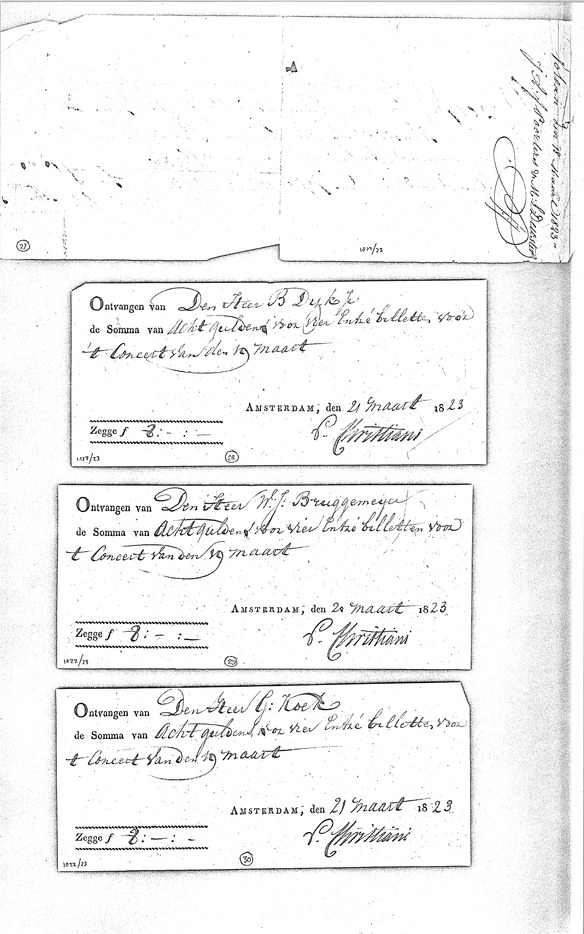 Voldaan den 18 Maart 1823 -
27
1022/23
Ontvangen van Den Heer B Dyk Jr
de Somma van Acht guldens voor vier Entré billetten voor
't Concert van den 19 maart
AMSTERDAM, den 21 maart 1823
Zegge f 8:- :-
P. Christiani
1022/23
28
Ontvangen van Den Heer W. J: Bruggemeyer
de Somma van Acht guldens voor vier Entré billetten voor
't Concert van den 19 maart
AMSTERDAM, den 20 maart 1823
Zegge f 8:- :-
P. Christiani
1022/23
29
Ontvangen van Den Heer G: Koek
de Somma van Acht guldens voor vier Entré billetten voor
't Concert van den 19 maart
AMSTERDAM, den 21 maart 1823
Zegge f 8:-:-
P. Christiani
1022/23
30